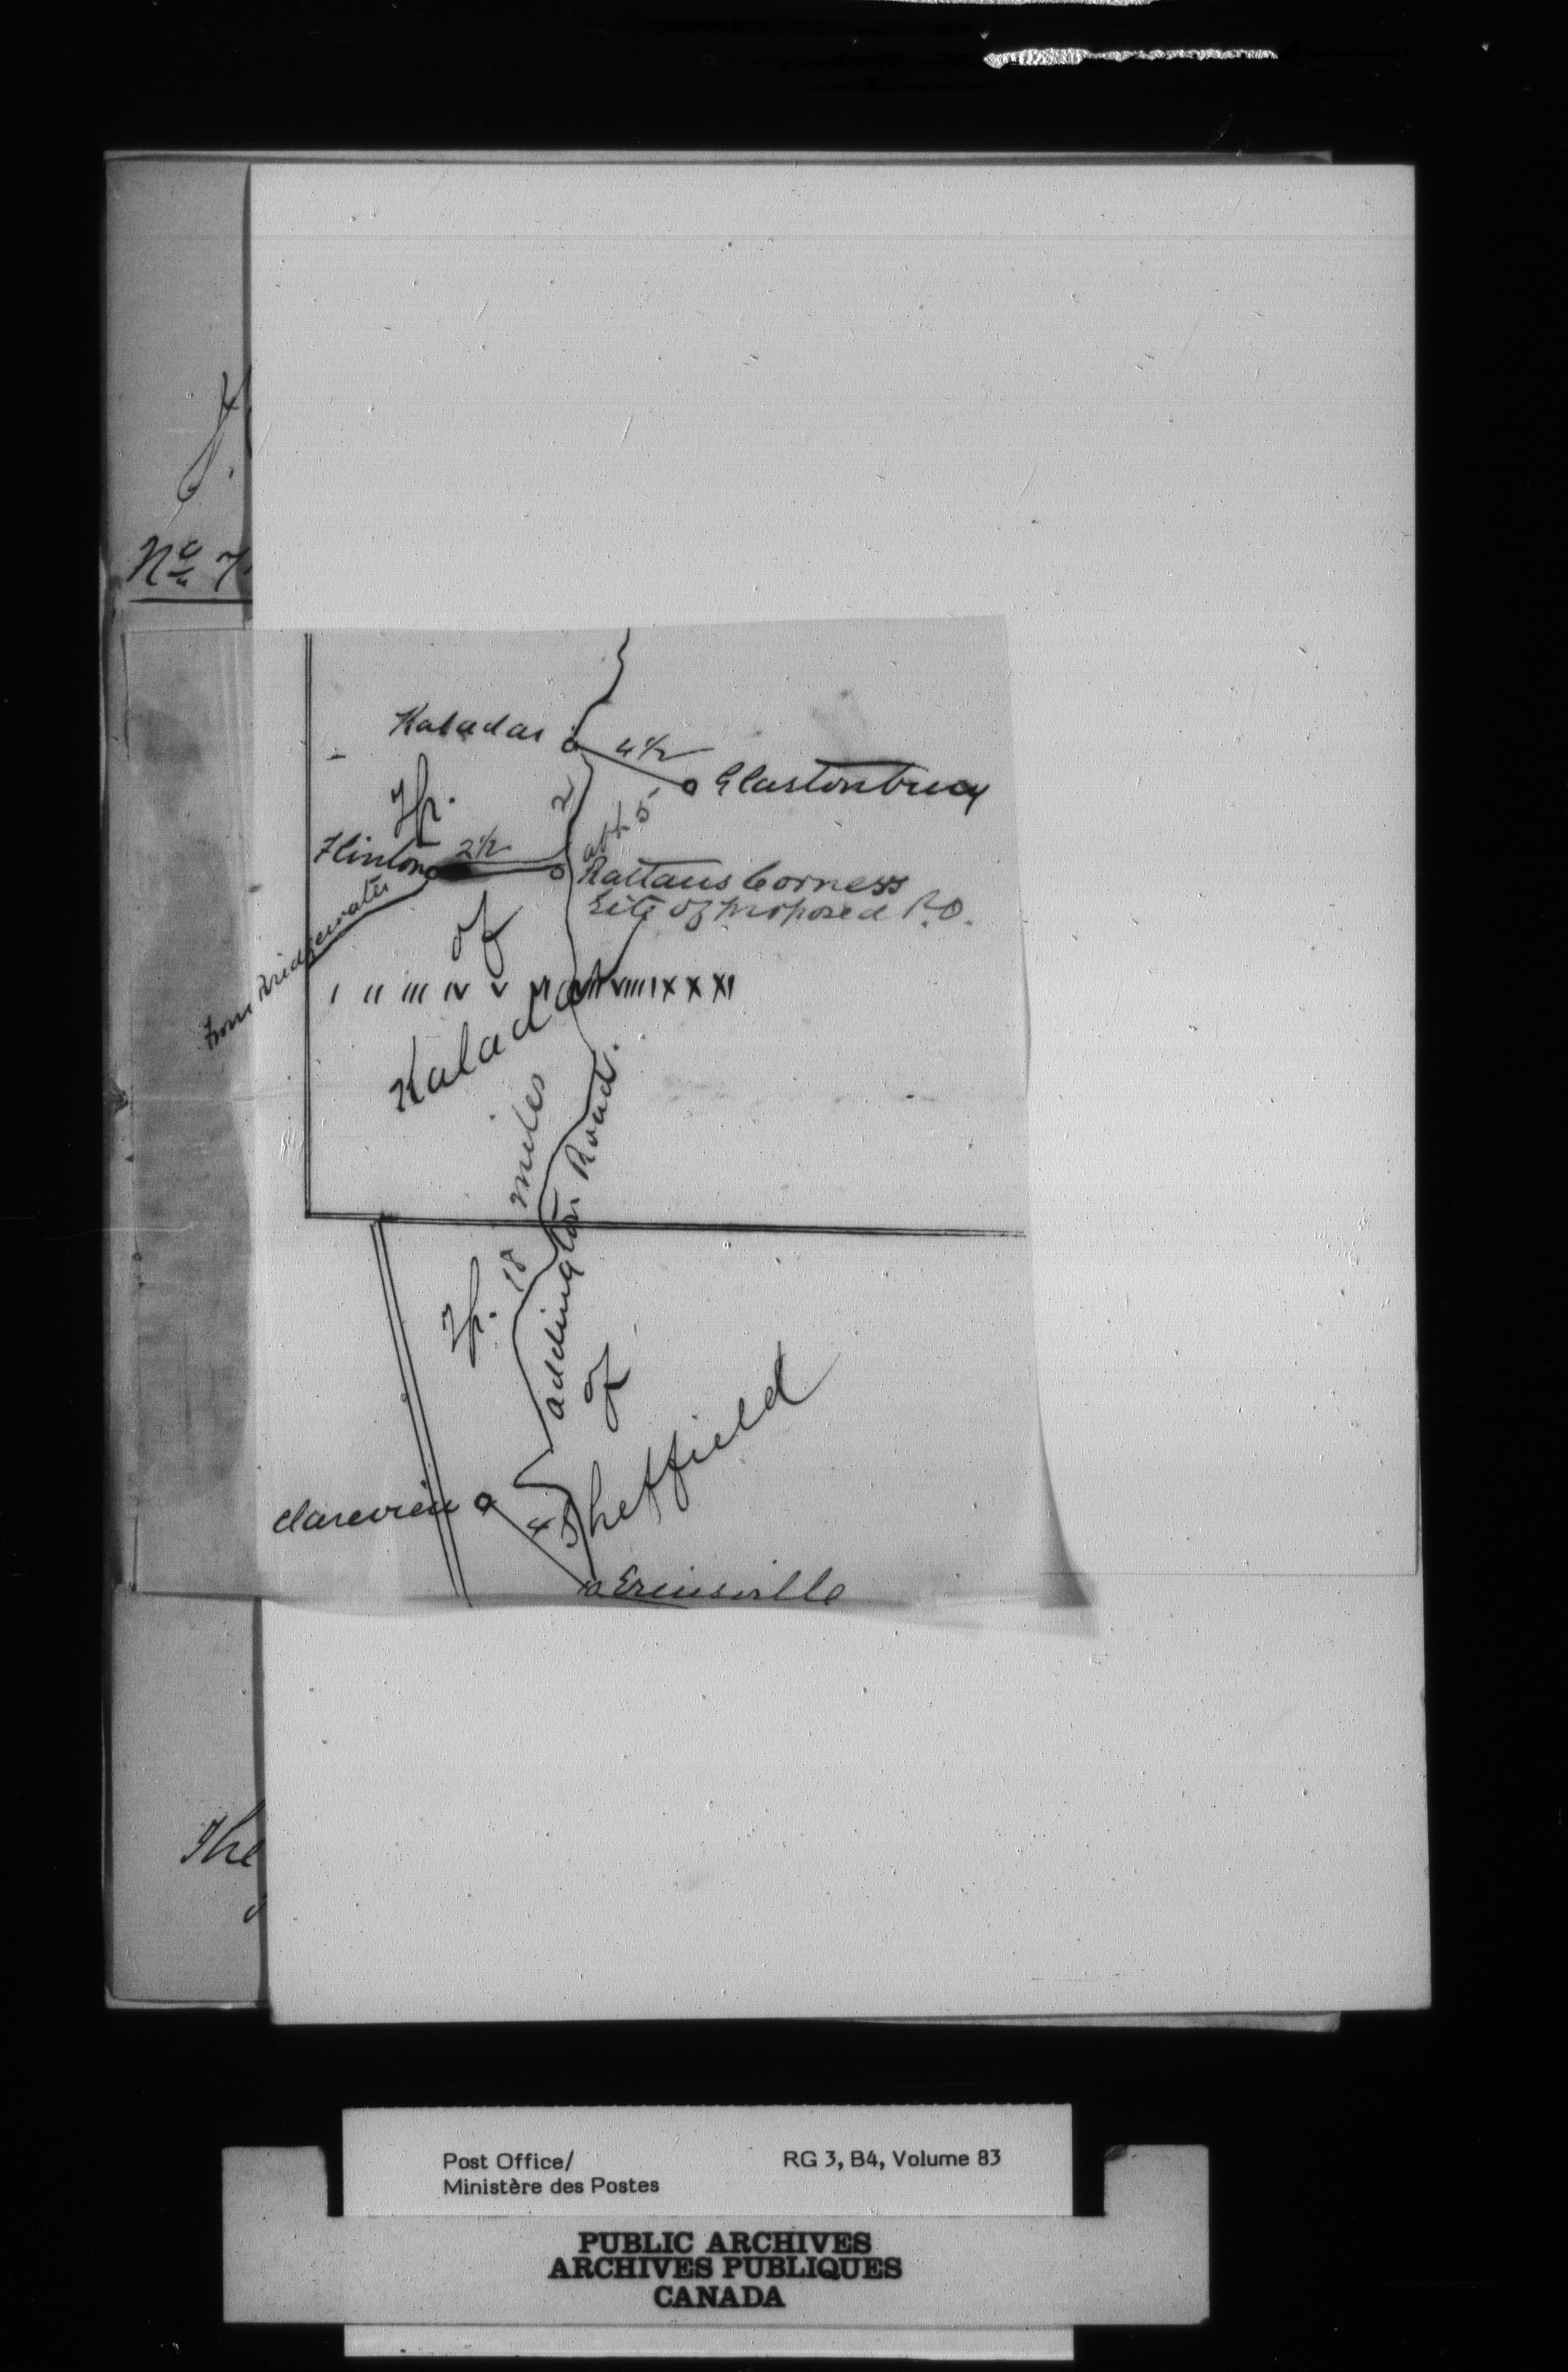 No 7
Kaladar
4 1/2
Glastonbury
Tp.
2
abt 5
Flinton
2 1/2
Rattans Corners
Site of proposed P.O.
from Bridgewater
of
I II III IV V VI VII VIII IX X XI
Kaladar
18 miles
Addington Road.
Tp.
of
Sheffield
Clareview
4
Erinsville
The
Post Office/
Ministère des Postes
RG 3, B4, Volume 83
PUBLIC ARCHIVES
ARCHIVES PUBLIQUES
CANADA